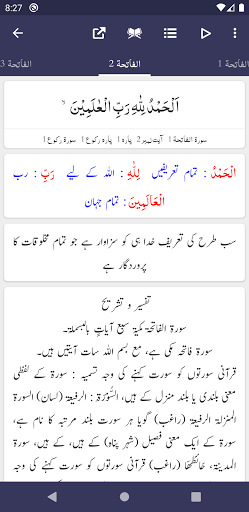 8:27
الفَاتِحَة 3
الفَاتِحَة 2
الفَاتِحَة 1
اَلْحَمْدُ لِلّٰهِ رَبِّ الْعٰلَمِیْنَ ۙ
سورۃ الفاتحۃ 1 آیت نمبر 2 پارہ 1 پارہ رکوع 1 سورۃ رکوع 1
الْحَمْدُ : تمام تعریفیں لِلّٰهِ : اللہ کے لیے رَبِّ : رب
الْعَالَمِينَ : تمام جہان
سب طرح کی تعریف خدا ہی کو سزاوار ہے جو تمام مخلوقات کا
پروردگار ہے
تفسیر و تشریح
سورۃ الفاتحۃ مکیۃ سبع آیات بالبسملۃ۔
سورۃ فاتحہ مکی ہے، مع بسم اللہ سات آیتیں ہیں۔
قرآنی سورتوں کو سورت کہنے کی وجہ تسمیہ : سورۃ کے لفظی
معنی بلندی یا بلند منزل کے ہیں، السُّوْرَۃ : الرفیعۃ (لسان) السورۃ
المنزلۃ الرفیعۃ (راغب) گویا ہر سورت بلند مرتبہ کا نام ہے،
سورۃ کے ایک معنی فصیل (شہر پناہ) کے ہیں، کے ہیں، سورۃ
المدینۃ، حائطُھَا (راغب) قرآنی سورتوں کو سورت کہنے کی وجہ